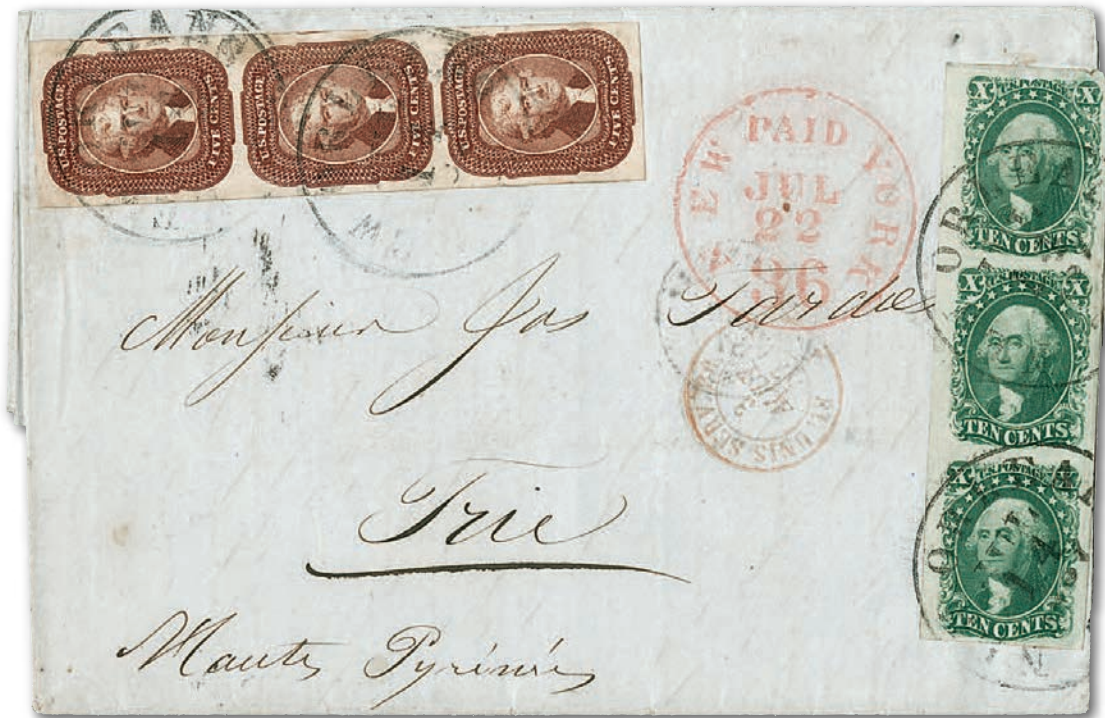 U.S. POSTAGE
FIVE CENTS
U.S. POSTAGE
FIVE CENTS
U.S. POSTAGE
FIVE CENTS
NEW PAID YORK
JUL
22
36
X U.S. POSTAGE X
TEN CENTS
X U.S. POSTAGE X
TEN CENTS
X U.S. POSTAGE X
TEN CENTS
Monsieur Jos Tardos
ET. UNIS SERV.
Trie
Hautes Pyrénées